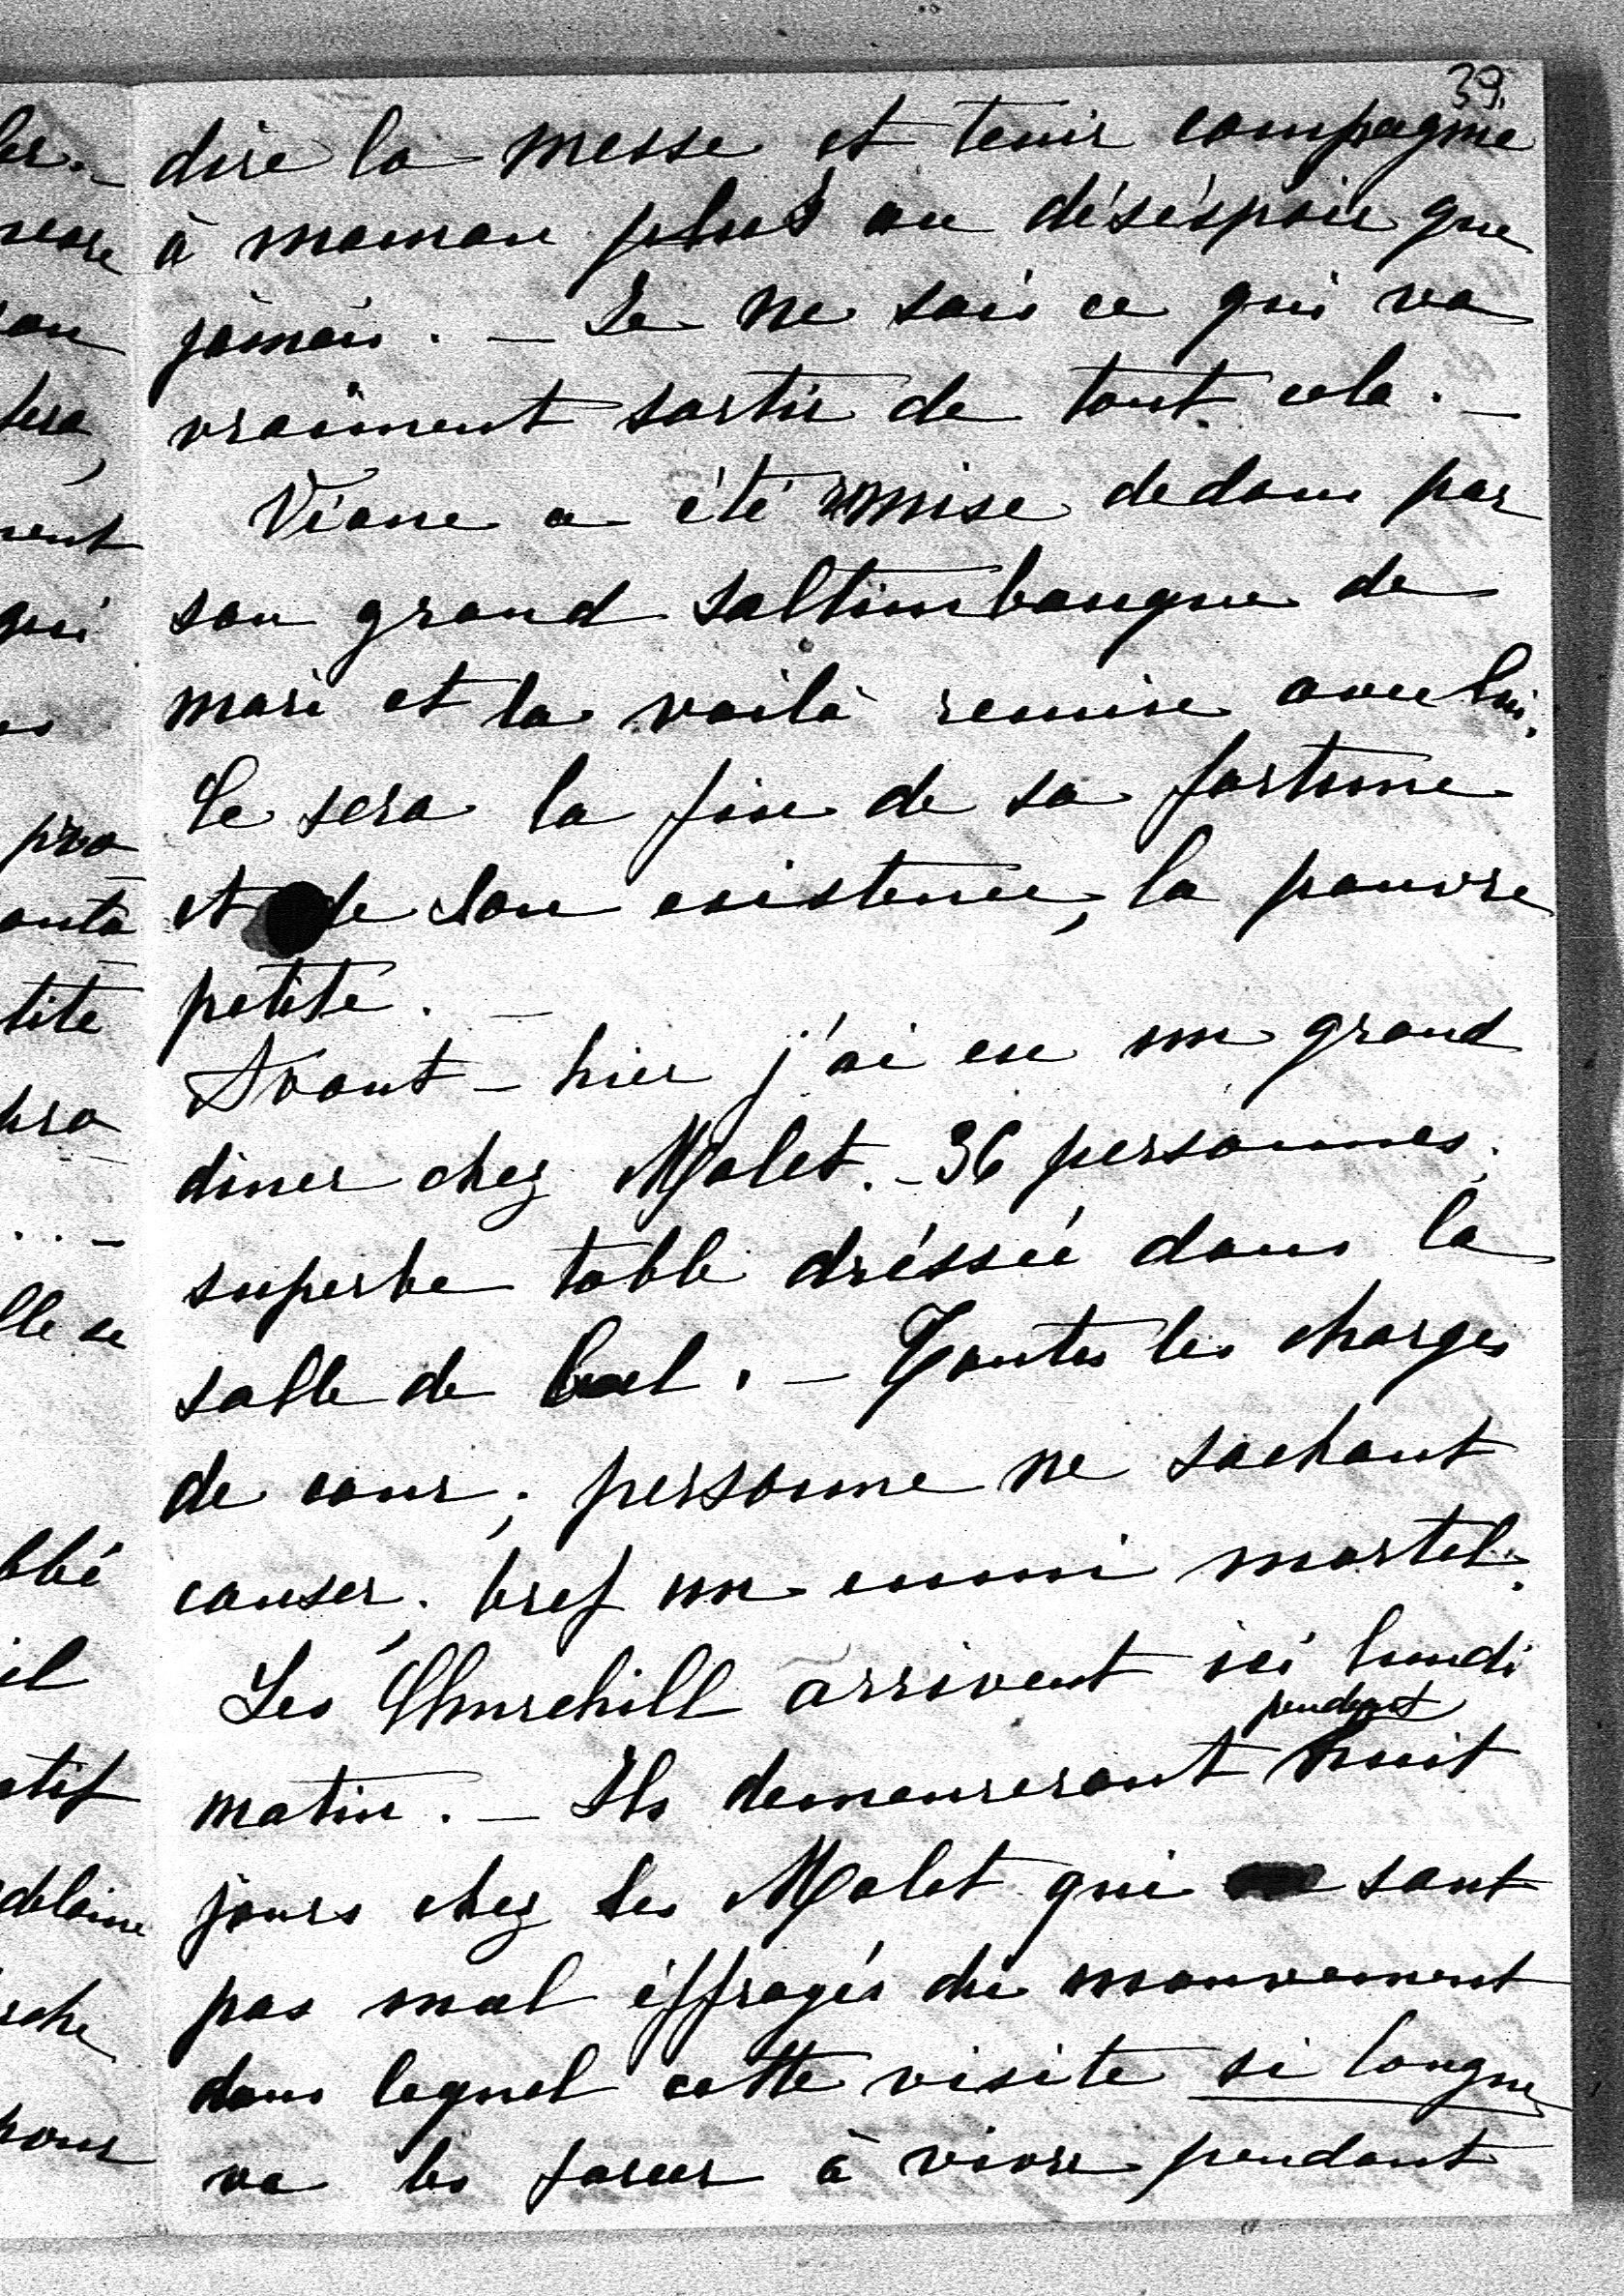 39.
dire la messe et tenir compagnie
à maman plus au déséspoir que
jamais. — Je ne sais ce qui va
vraiment sortir de tout cela. —
Viane a été remise dedans par
son grand saltimbanque de
mari et la voilà remise avec lui.
Ce sera la fin de sa fortune
et de son existence, la pauvre
petite. —
Avant-hier j'ai eu un grand
diner chez Malet. - 36 personnes;
superbe table dréssée dans la
salle de bal. — Toutes les charges
de cour; personne ne sachant
causer; bref un ennui mortel.
Les Churchill arrivent ici lundi
pendant
matin. — Ils demeureront huit
jours chez les Malet qui sont
pas mal éffrayés du mouvement
dans lequel cette visite si longue
va les forcer à vivre pendant
ler. —
tera,
ment
qui
pro
tite
...—
lle se
abbé
il
atif
delaine
rche
pour